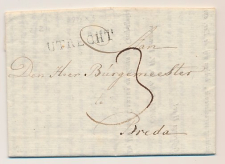 UTRECHT
Aan
Den Heer Burgemeester
te
3
Breda